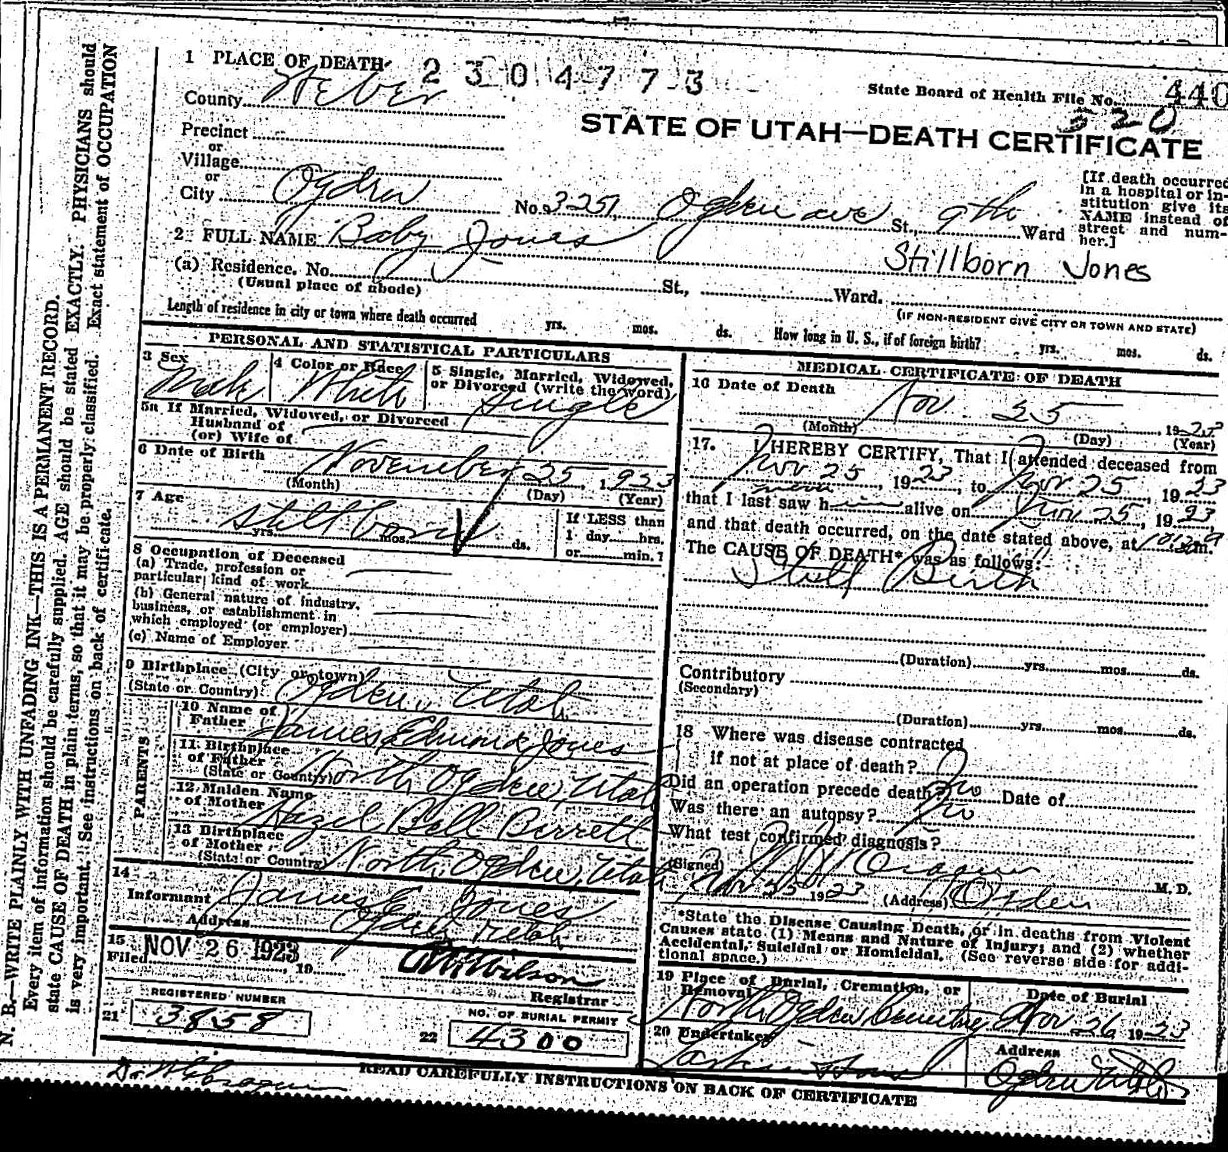 1 PLACE OF DEATH 2304773
State Board of Health File No. 440
County Weber
520
STATE OF UTAH—DEATH CERTIFICATE
Precinct
or
Village
or
City Ogden No. 3251 Ogden ave St., 9th Ward
[If death occurred in a hospital or institution give its NAME instead of street and number.]
2 FULL NAME Baby Jones
Stillborn Jones
(a) Residence. No. St., Ward.
(Usual place of abode) (IF NON-RESIDENT GIVE CITY OR TOWN AND STATE)
Length of residence in city or town where death occurred yrs. mos. ds. How long in U. S., if of foreign birth? yrs. mos. ds.
PERSONAL AND STATISTICAL PARTICULARS
3 Sex Male
4 Color or Race White
5 Single, Married, Widowed, or Divorced (write the word) Single
5a If Married, Widowed, or Divorced
Husband of
(or) Wife of
6 Date of Birth November 25, 1923
(Month) (Day) (Year)
7 Age stillborn
yrs. mos. ds.
If LESS than
1 day hrs.
or min. ?
8 Occupation of Deceased
(a) Trade, profession or
particular kind of work
(b) General nature of industry,
business, or establishment in
which employed (or employer)
(c) Name of Employer
9 Birthplace (City or town)
(State or Country) Ogden, Utah
PARENTS
10 Name of
Father James Edmund Jones
11 Birthplace
of Father
(State or Country) North Ogden, Utah
12 Maiden Name
of Mother Hazel Bell Berrett
13 Birthplace
of Mother
(State or Country) North Ogden, Utah
14
Informant James E Jones
Address Ogden Utah
15
Filed NOV 26 1923, 19
Wilson
Registrar
REGISTERED NUMBER
21 3858
NO. OF BURIAL PERMIT
22 4300
MEDICAL CERTIFICATE OF DEATH
16 Date of Death Nov 25 1923
(Month) (Day) (Year)
17. I HEREBY CERTIFY, That I attended deceased from
Nov 25, 1923, to Nov 25, 1923
that I last saw h alive on Nov 25, 1923
and that death occurred, on the date stated above, at m.
The CAUSE OF DEATH* was as follows:
Still Birth
(Duration) yrs. mos. ds.
Contributory
(Secondary)
(Duration) yrs. mos. ds.
18 Where was disease contracted
if not at place of death?
Did an operation precede death? No Date of
Was there an autopsy? No
What test confirmed diagnosis?
(Signed) M. D.
Nov 25 1923 (Address) Ogden
*State the Disease Causing Death, or in deaths from Violent
Causes state (1) Means and Nature of Injury; and (2) whether
Accidental, Suicidal or Homicidal. (See reverse side for addi-
tional space.)
19 Place of Burial, Cremation, or
Removal North Ogden Cemetery
Date of Burial
Nov 26 1923
20 Undertaker
Address
Ogden Utah
READ CAREFULLY INSTRUCTIONS ON BACK OF CERTIFICATE
N. B.—WRITE PLAINLY WITH UNFADING INK—THIS IS A PERMANENT RECORD.
Every item of information should be carefully supplied. AGE should be stated EXACTLY. PHYSICIANS should
state CAUSE OF DEATH in plain terms, so that it may be properly classified. Exact statement of OCCUPATION
is very important. See instructions on back of certificate.